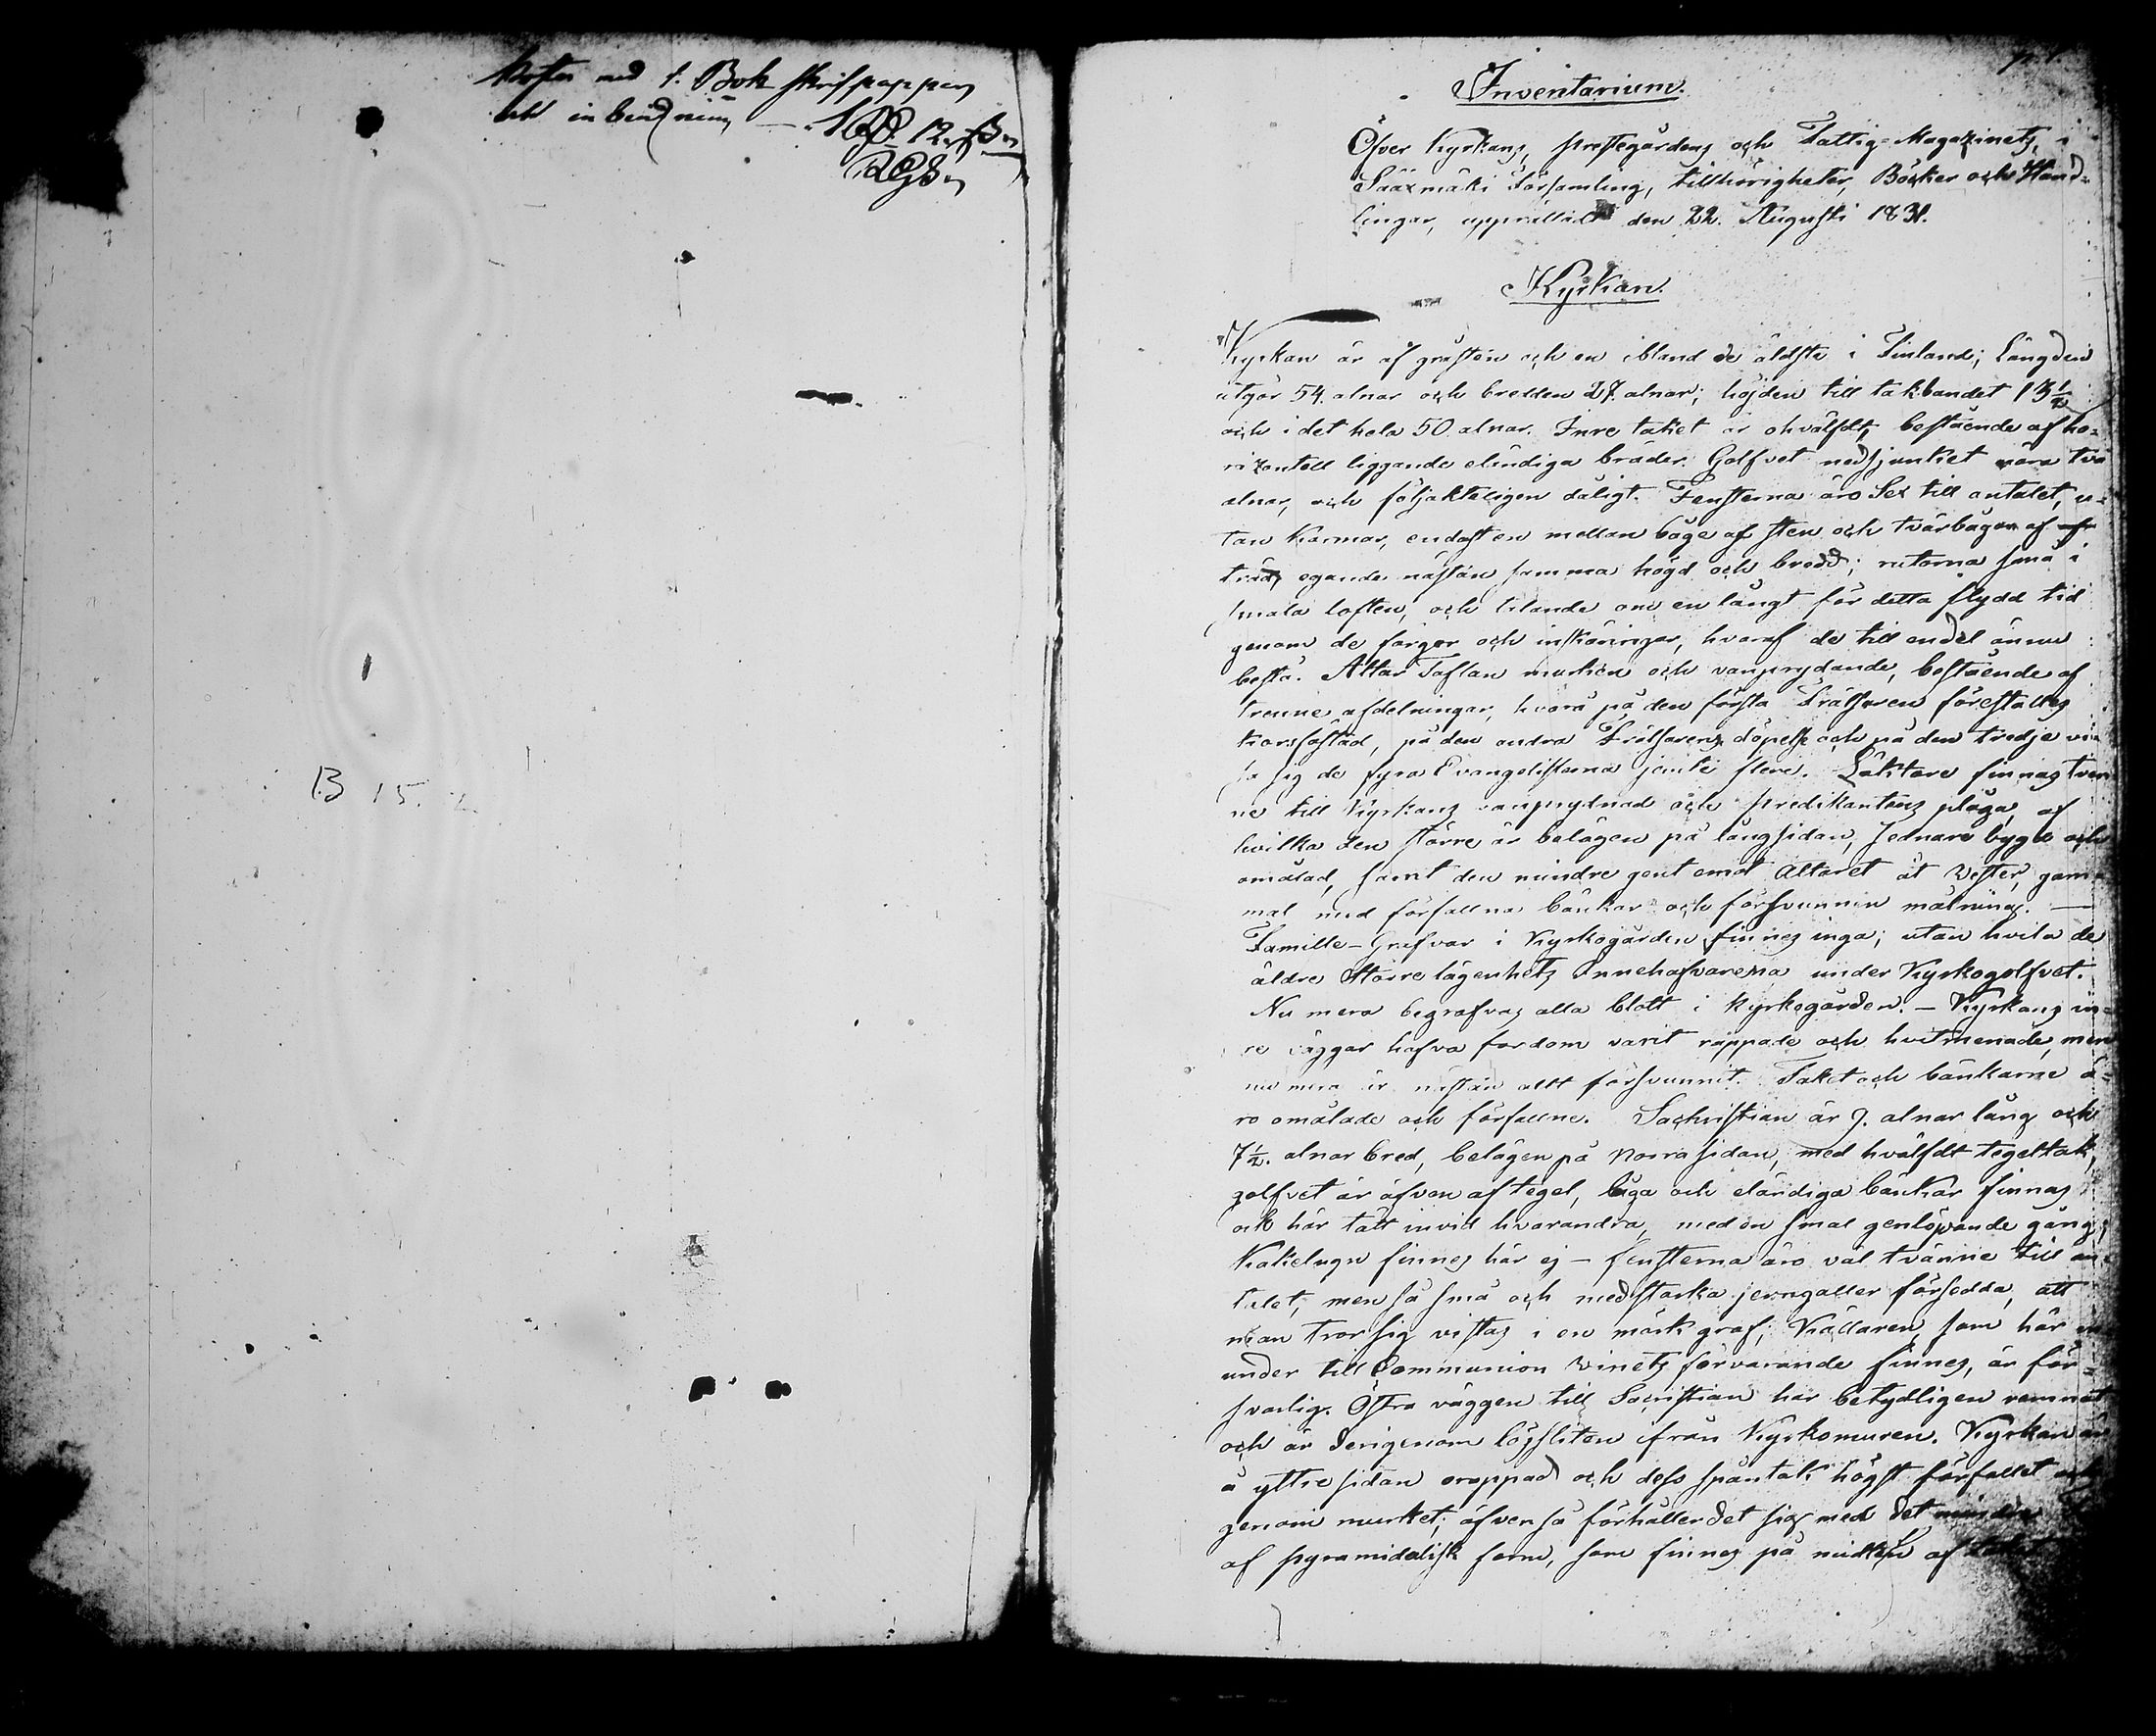 Kostar med 1. Bok skrifpapper
och inbindning — 1 Rd. 12. ß
RGS.
B 15.
p. 1.
Inventarium.
Öfver Kyrkans, prestegårdens och Fattig-Magazinets, i
Sääxmäki Församling, tillhörigheter, Böcker och Hand-
lingar, upprättadt den 22. Augusti 1831.
Kyrkan.
Kyrkan är af gråsten och en ibland de äldsta i Finland; Längden
utgör 54. alnar och bredden 27. alnar; höjden till takbandet 13½
och i det hela 50 alnar. Inre taket är ohvälfdt, bestående af ho-
rizontell liggande eländiga bräder. Golfvet nedsjunket nära två
alnar, och följakteligen dåligt. Fensterna äro Sex till antalet, u-
tan karmar, endast en mellan båge af sten och tvärbågar af
träd, egande nästan samma högd och bredd; rutorna små i
smala loften, och talande om en långt för detta flydd tid
genom de färger och inskäringar, hvaraf de till en del ännu
bestå. Altar Taflan murken och vanprydande, bestående af
trenne afdelningar, hvara på den första Frälsaren föreställes
korsfästad, på den andra Frälsarens döpelse och på den tredje vi-
sa sig de fyra Evangelisterna jemte flere. Läktare finnas tven-
ne till Kyrkans vanprydnad och predikantens plåga, af
hvilka den större är belägen på långsidan, sednare bygd och
omålad, samt den mindre gent emot Altaret åt Vester, gam-
mal med förfallna bänkar och försvunnen målning. —
Famille-Grafvar i Kyrkogården finnes inga; utan hvila de
äldre större lägenhets Innehafvarena under Kyrkogolfvet.
Nu mera begrafvas alla blott i kyrkegården. — Kyrkans in-
re väggar hafva fordom varit rappade och hvitmenade, men
nu mera är nästan allt försvunnit. Taket och bänkarne ä-
ro omålade och förfallne. Sachristian är 9. alnar lång och
7½. alnar bred, belägen på Norra sidan, med hvälfdt tegeltak,
golfvet är äfven af tegel, låga och eländiga bänkar finnas
ock här tätt invid hvarandra, med en smal genlöpande gång;
Kakelugn finnes här ej — fensterna äro väl tvänne till an-
talet, men så små och med starka jerngaller försedda, att
man tror sig vistas i en mörk graf; Källaren, som här in
under till Communion Vinets förvarande finnes, är för-
svarlig. Östra väggen till Sacristian har betydligen remnat
och är derigenom lössliten från Kyrkomuren. Kyrkan är
å yttre sidan orappad och dess spåntak högst förfallet och
genom murket; äfven så förhåller det sig med det mindre
af pyramidalisk form, som finnes på midten af taket